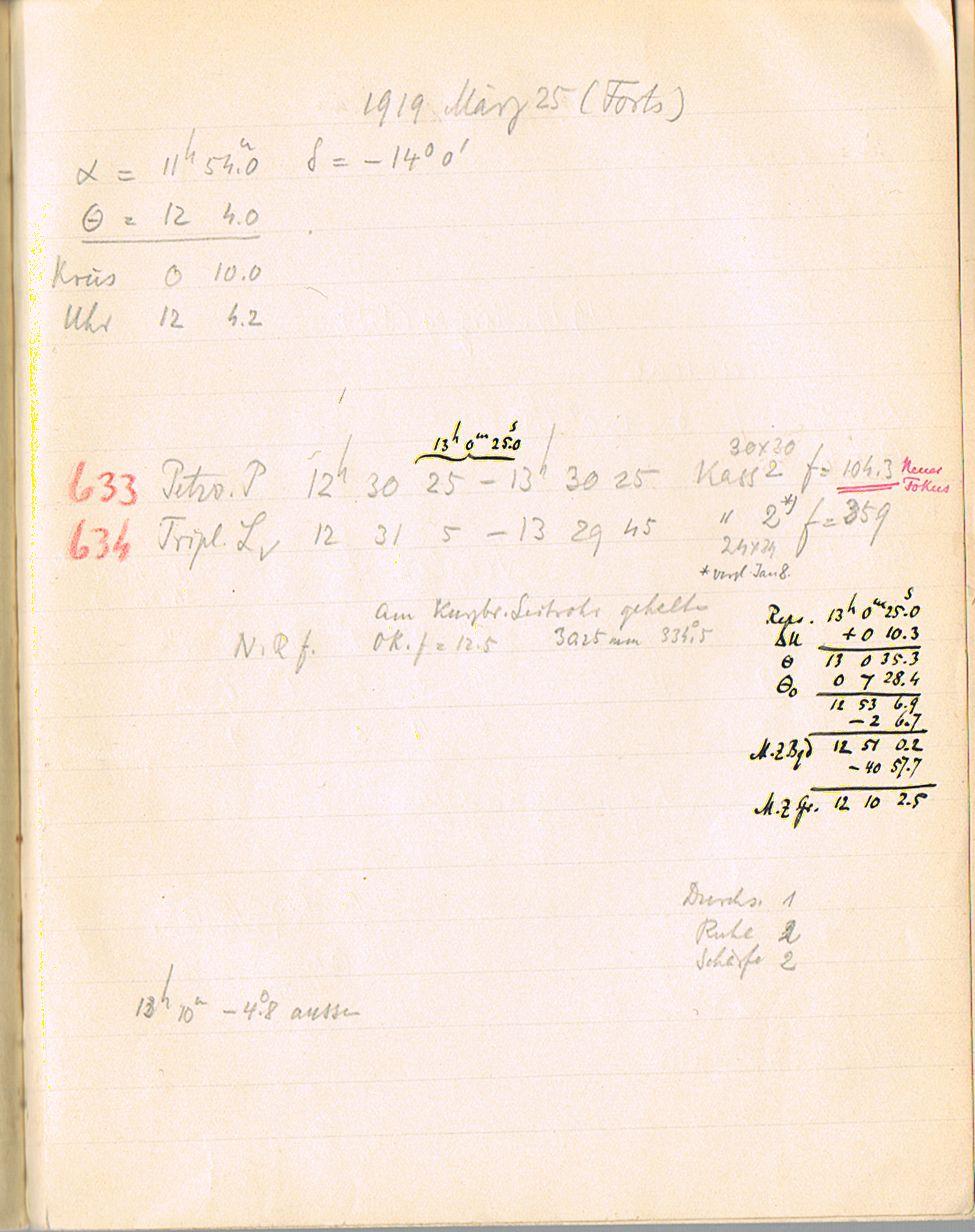 1919 März 25 (Forts)
α = 11h 54m.0 δ = -14° 0'
Θ = 12 4.0
Kreis 0 10.0
Uhr 12 4.2
13h 0m 25s.0
30x30
633 Petzv. P 12h 30 25 - 13h 30 25 Kass 2 f = 104.3 Neuer Fokus
634 Tripl. L 12 31 5 - 13 29 45 " 2*) f = 359
24x24
* vergl. Jan 8.
am Kurzbr. Leitrohr gehalten
N.R f. OK. f = 12.5 30.25 mm 334°.5
Reps. 13h 0m 25s.0
ΔU + 0 10.3
Θ 13 0 35.3
Θ0 0 7 28.4
12 53 6.9
- 2 6.7
M.Z Bgd 12 51 0.2
- 40 57.7
M.Z Gr. 12 10 2.5
Durchs. 1
Ruhe 2
Schärfe 2
13h 10m -4°.8 aussen